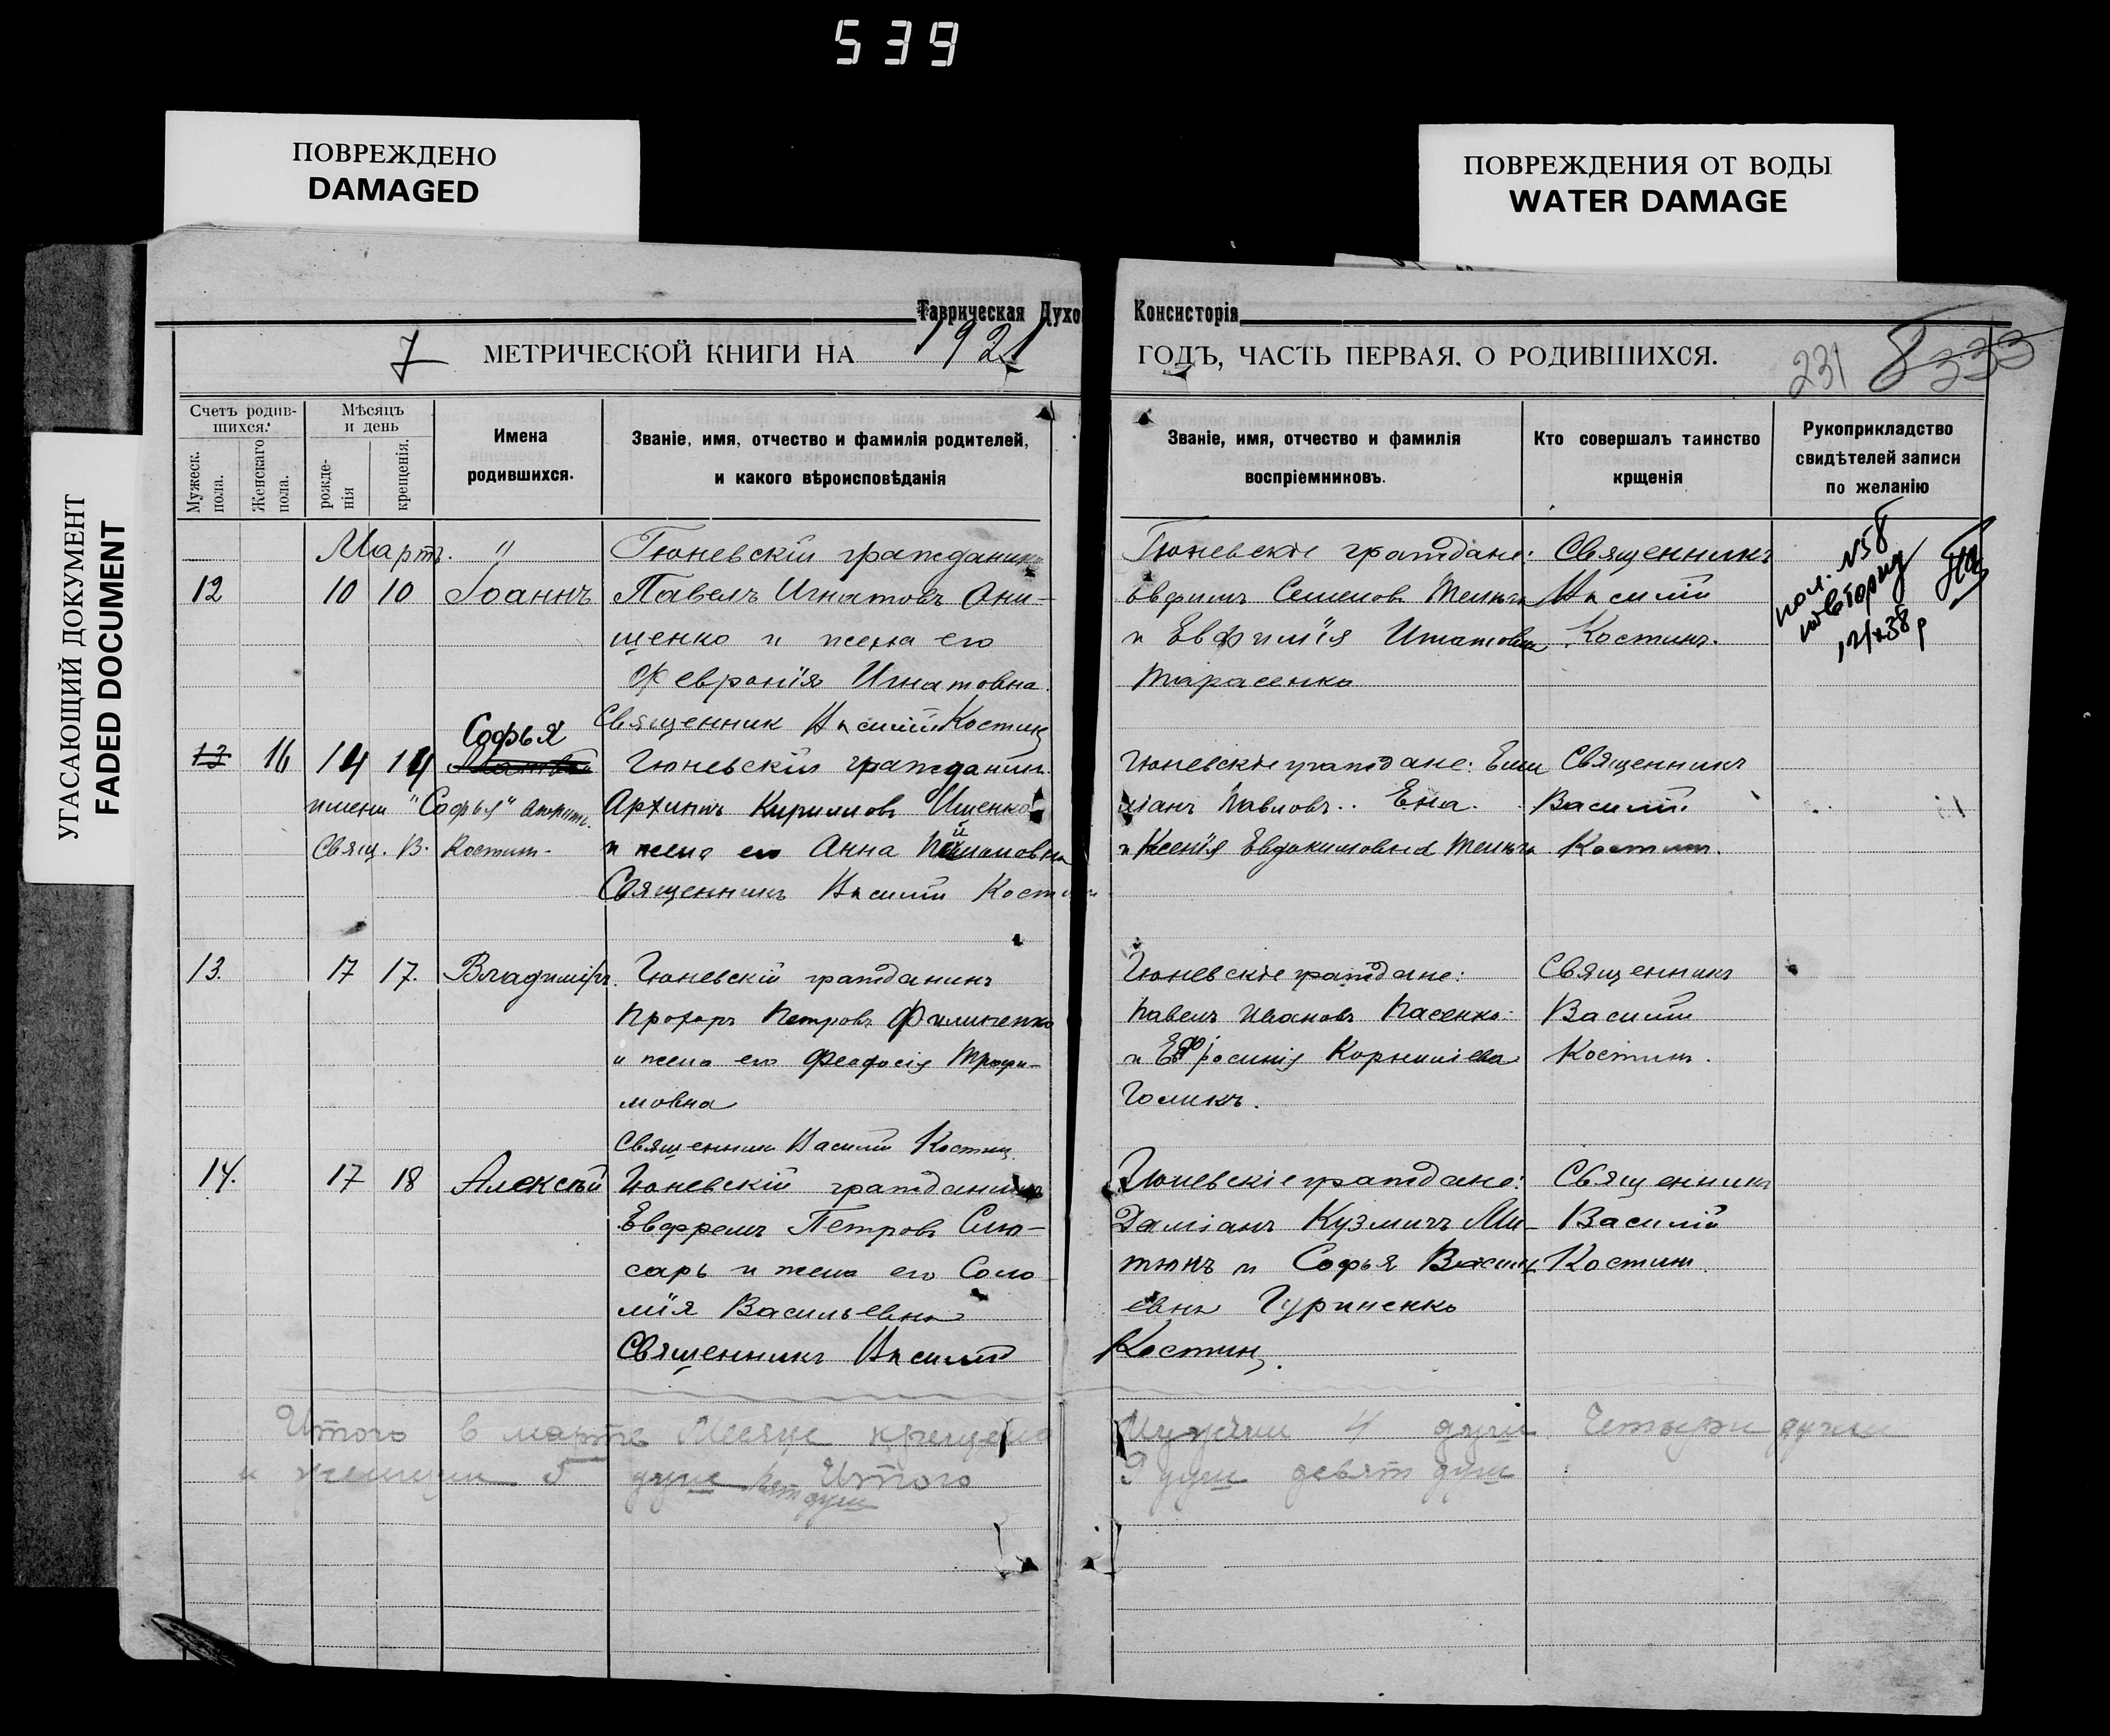 539
ПОВРЕЖДЕНО
DAMAGED
ПОВРЕЖДЕНИЯ ОТ ВОДЫ
WATER DAMAGE
УГАСАЮЩИЙ ДОКУМЕНТ
FADED DOCUMENT
Таврическая Духо Консисторія
7 МЕТРИЧЕСКОЙ КНИГИ НА 1921 ГОДЪ, ЧАСТЬ ПЕРВАЯ. О РОДИВШИХСЯ. 231 8 333
Счетъ родив-
шихся.
Мужеск. пола.
Женскаго пола.
Мѣсяцъ
и день
рожде-
нія
крещенія.
Имена
родившихся.
Званіе, имя, отчество и фамилія родителей,
и какого вѣроисповѣданія
Званіе, имя, отчество и фамилія
воспріемниковъ.
Кто совершалъ таинство
крщенія
Рукоприкладство
свидѣтелей записи
по желанію
Мартъ. " Гюневскій гражданинъ
12 10 10 Іоаннъ Павелъ Игнатовъ Они-
щенко и жена его
Февронія Игнатовна.
Священник Василій Костин
Гюневскіе граждане:
Евфимъ Семенов
и Евфимія Игнатовна
Тарасенко
Священникъ
Василій
Костинъ.
№58
Софья
13 16 14 14 Гюневскій гражданин.
имени "Софья"
Свящ. В. Костин.
Архипъ Кирилловъ Ищенко
и жена его Анна
Священникъ Василій Костин
Гюневскіе граждане:
Павловъ. Ена.
и Ксенія Евдокимовна
Священникъ
Василій
Костин.
13. 17 17. Владиміръ. Гюневскій гражданинъ
Прохоръ Петровъ Филиненко
и жена его Феодосія Трофи-
мовна
Священник Василій Костин.
Гюневскіе граждане:
Павелъ Ивановъ Пасенко
и Ефросинія Корниліева
Голикъ.
Священникъ
Василій
Костин.
14. 17 18 Алексѣй Гюневскій гражданинъ
Евфремъ Петровъ Слю-
сарь и жена его Соло
мія Васильевна
Священникъ Василій Костин.
Гюневскіе граждане:
Даміанъ Кузмичъ Ми-
тюкъ и Софья Васил
евна Гуриненко
Священникъ
Василій
Костин.
Итого в марте Месяце крещено Мужчин 4 души Четыри души
и женщин 5 душ Пят душ Итого 9 душ девят душ